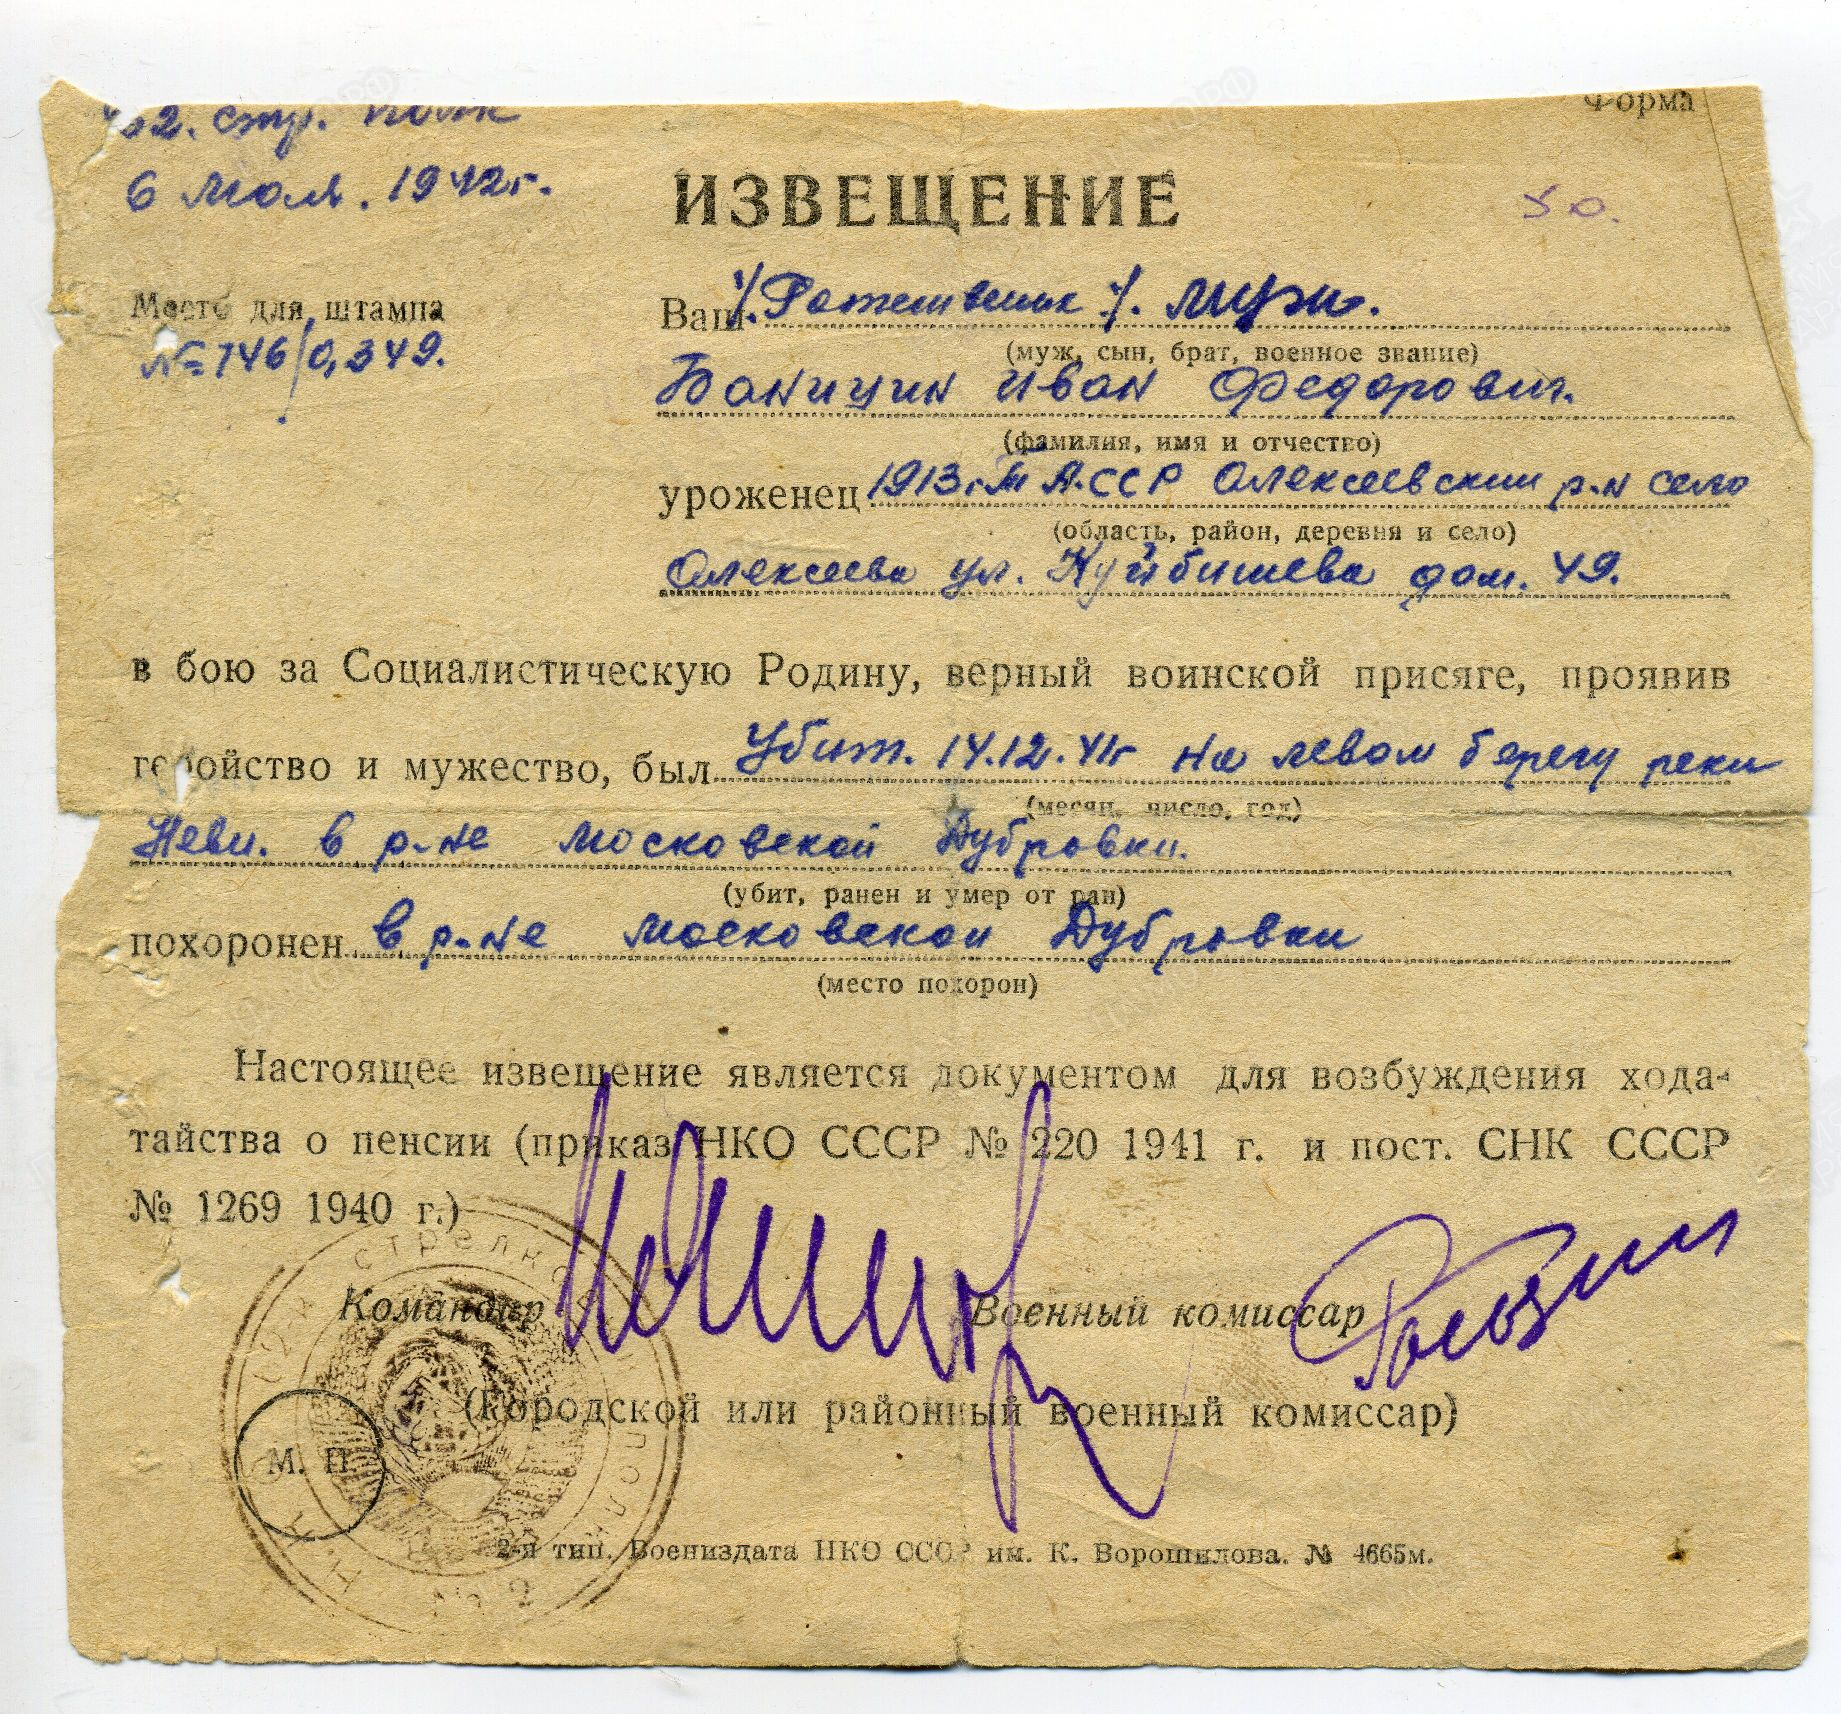 стр. полк
Форма
6 июля. 1942 г.
ИЗВЕЩЕНИЕ
Место для штампа
№ 746/0,349.
Ваш муж.
(муж, сын, брат, военное звание)
Баницин Иван Федорович.
(фамилия, имя и отчество)
уроженец 1913 г. Т А.ССР Алексеевский р-н село
(область, район, деревня и село)
Алексеева ул. Куйбишева дом. 49.
в бою за Социалистическую Родину, верный воинской присяге, проявив
геройство и мужество, был убит. 14.12.41 г на левом берегу реки
(месяц, число, год)
Неви. в р-не Московской Дубровки.
(убит, ранен и умер от ран)
похоронен в р-не Московской Дубровки
(место похорон)
Настоящее извещение является документом для возбуждения хода-
тайства о пенсии (приказ НКО СССР № 220 1941 г. и пост. СНК СССР
№ 1269 1940 г.)
Командир
Военный комиссар
(Городской или районный военный комиссар)
М. П.
2-я тип. Воениздата НКО СССР им. К. Ворошилова. № 4665м.